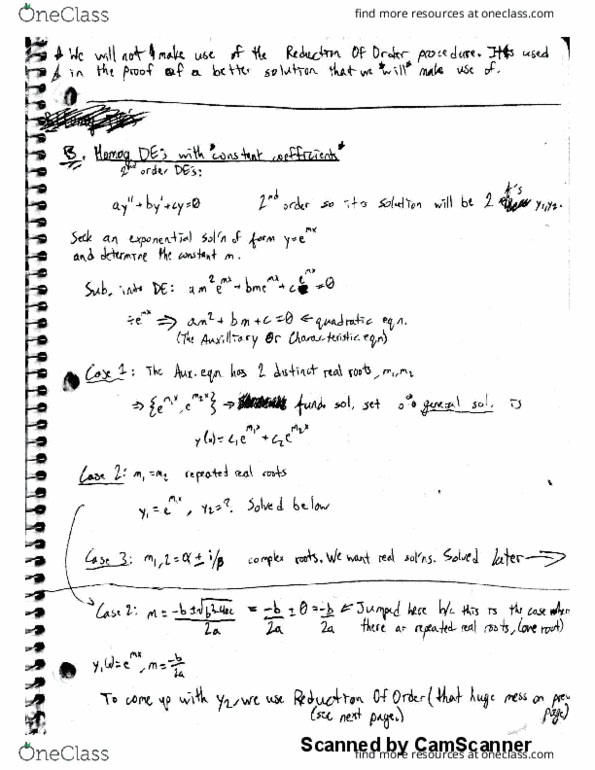 OneClass
find more resources at oneclass.com
We will not make use of the Reduction Of Order procedure. It is used
in the proof of a better solution that we "will" make use of.
B. Homog DE's with "constant coefficients"
2nd order DE's:
ay'' + by' + cy = 0 2nd order so its solution will be 2 y1, y2.
Seek an exponential sol'n of form y = e^mx
and determine the constant m.
Sub. into DE: am²e^mx + bme^mx + ce^mx = 0
÷e^mx ⇒ am² + bm + c = 0 ← quadratic eqn.
(The Auxilliary Or Characteristic eqn)
Case 1: The Aux. eqn has 2 distinct real roots, m1, m2
⇒ {e^m1x, e^m2x} ⇒ fund. sol. set ∴ general sol. is
y(x) = c1e^m1x + c2e^m2x
Case 2: m1 = m2 repeated real roots
y1 = e^m1x, y2 = ?. Solved below
Case 3: m1,2 = α ± iβ complex roots. We want real sol'ns. Solved later →
Case 2: m = -b ± √b²-4ac / 2a = -b/2a ± 0 = -b/2a ← Jumped here b/c this is the case when
there are repeated real roots, (one root)
y1(x) = e^mx, m = -b/2a
To come up with y2, we use Reduction Of Order (that huge mess on prev
(see next page.) page)
Scanned by CamScanner
OneClass
find more resources at oneclass.com